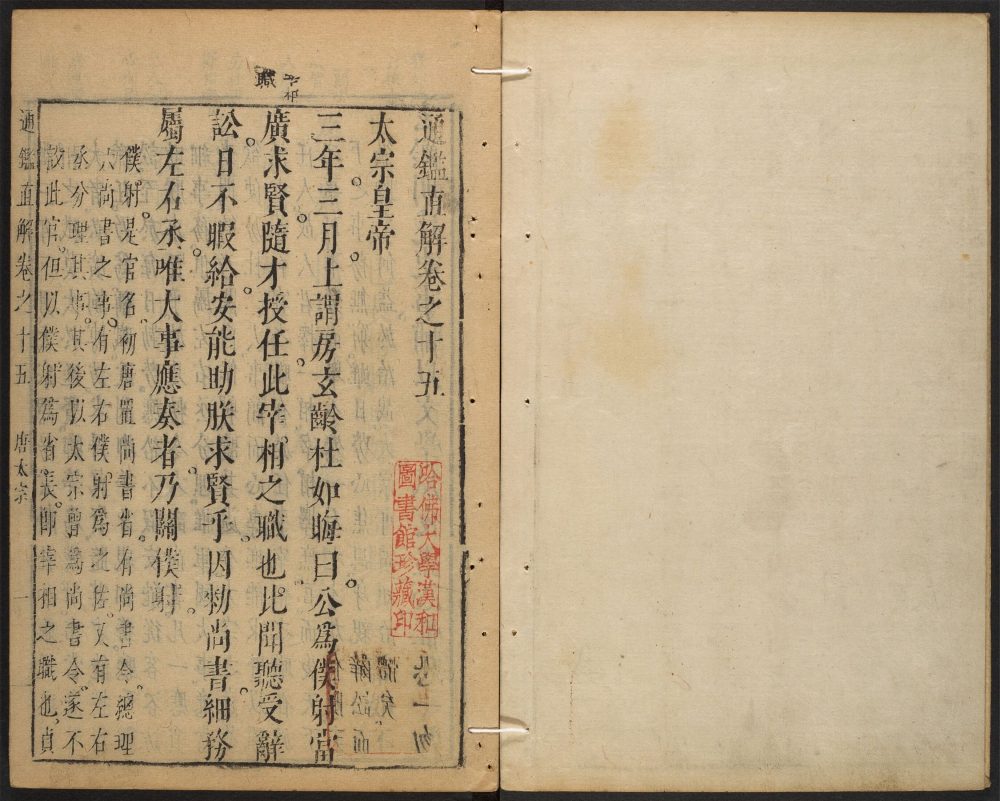 宰相
職
通鑑直解卷之十五
太宗皇帝
三年三月上謂房玄齡杜如晦曰公為僕射當
廣求賢隨才授任此宰相之職也比聞聽受辭
訟日不暇給安能助朕求賢乎因勑尚書細務
屬左右丞唯大事應奏者乃關僕射
僕射是官名初唐置尚書省有尚書令總理
六尚書之事有左右僕射為之佐又有左右
丞分理其事其後以太宗曾為尚書令遂不
設此官但以僕射為省長即宰相之職也貞
通鑑直解卷之十五 唐太宗 一
哈佛大學漢和
圖書館珍藏印